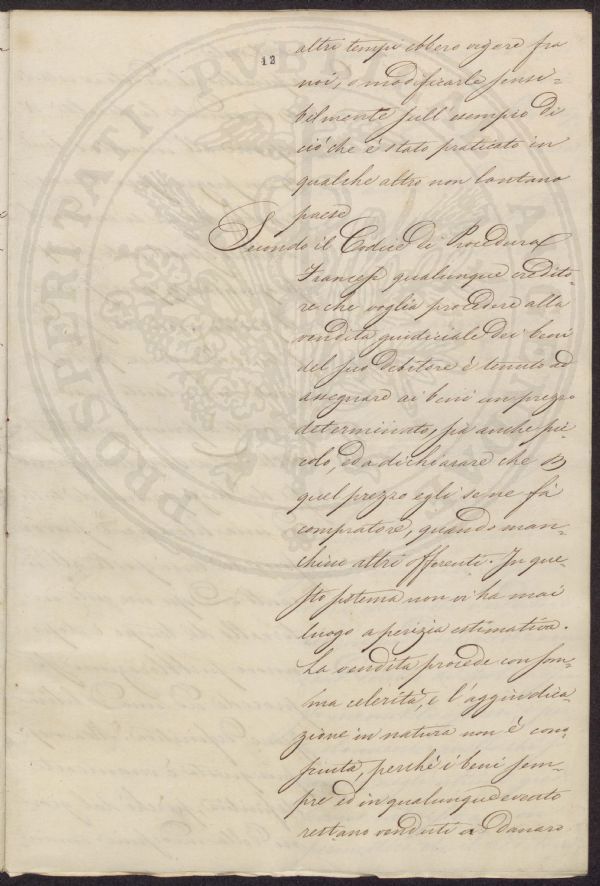 12
altri tempi ebbero vigore fra
noi, o modificarle sensi-
bilmente sull'esempio di
ciò che è stato praticato in
qualche altro non lontano
paese
Secondo il Codice di Procedura
Francese qualunque credito-
re che voglia procedere alla
vendita giudiciale dei beni
del suo debitore è tenuto ad
assegnare ai beni un prezzo
determinato, sia anche pic-
colo, ed a dichiarare che 
quel prezzo egli se ne fà
compratore, quando man-
chino altri offerenti. In que-
sto sistema non vi ha mai
luogo a perizia estimativa.
La vendita procede con som-
ma celerità, e l'aggiudica-
zione in natura non è cono-
sciuta, perché i beni sem-
pre ed in qualunque evento
restano venduti a danaro
PROSPERITATI PUBLICAE